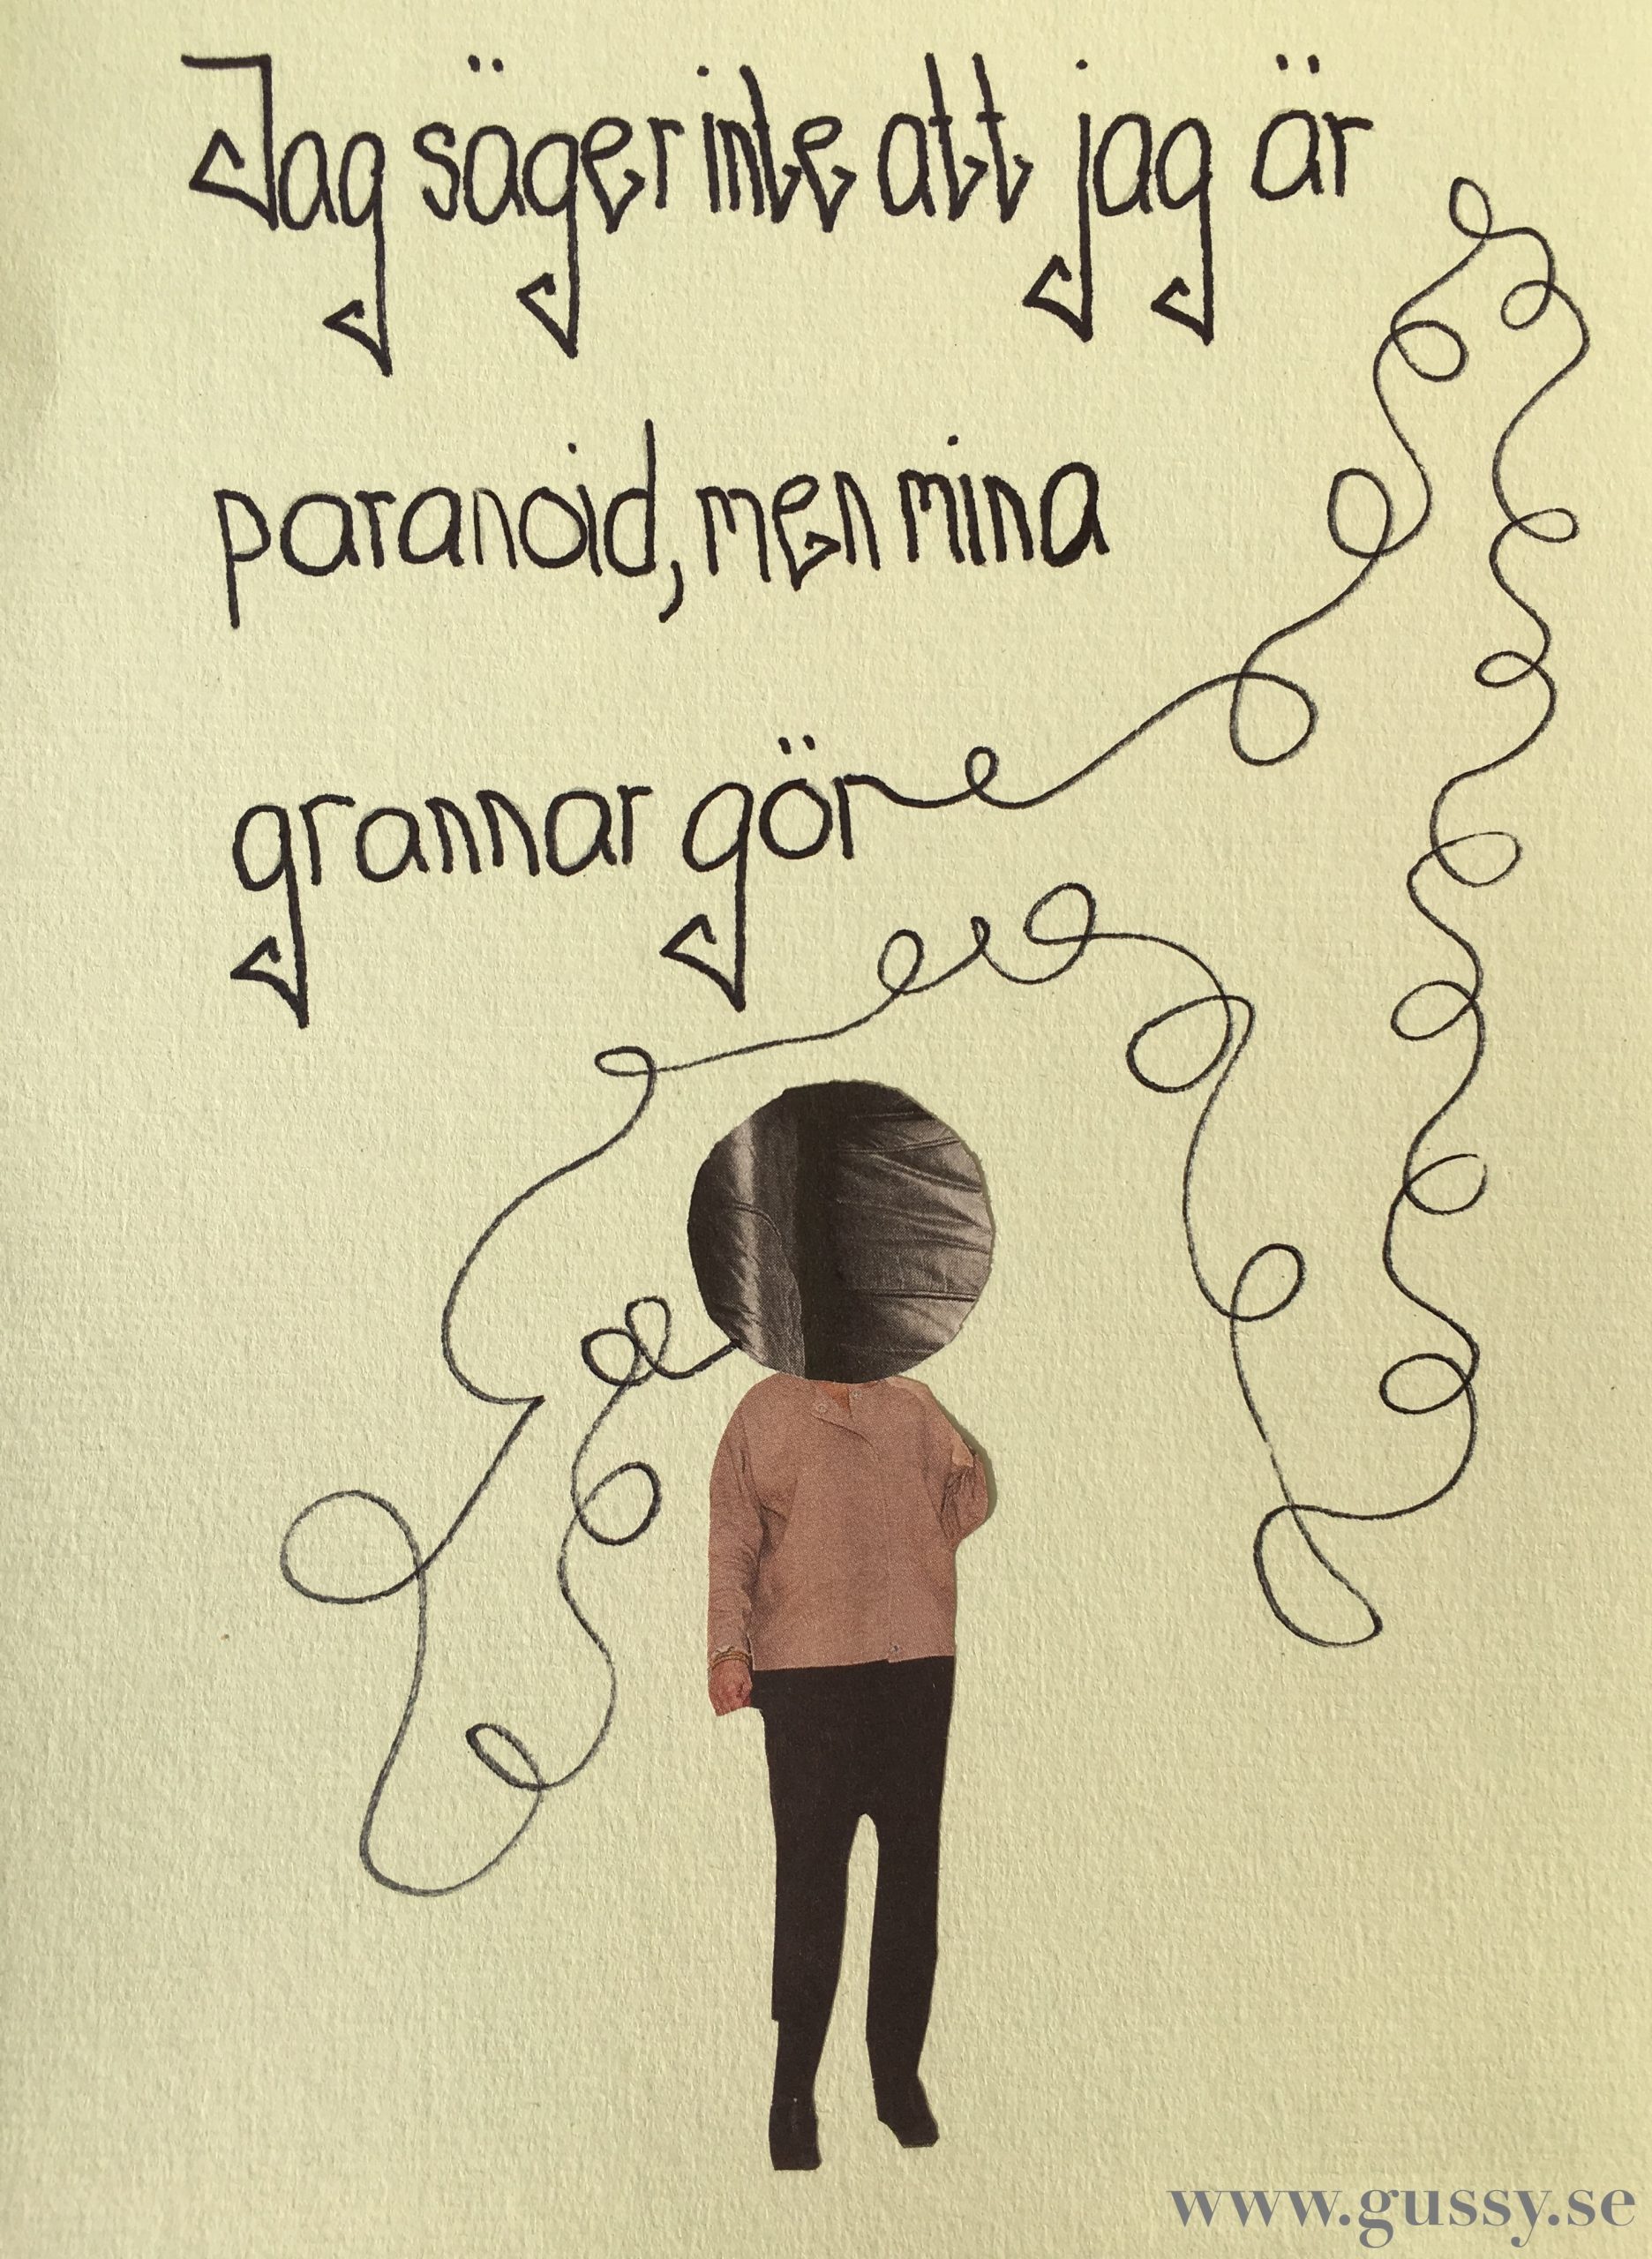 Jag säger inte att jag är
paranoid, men mina
grannar gör
www.gussy.se